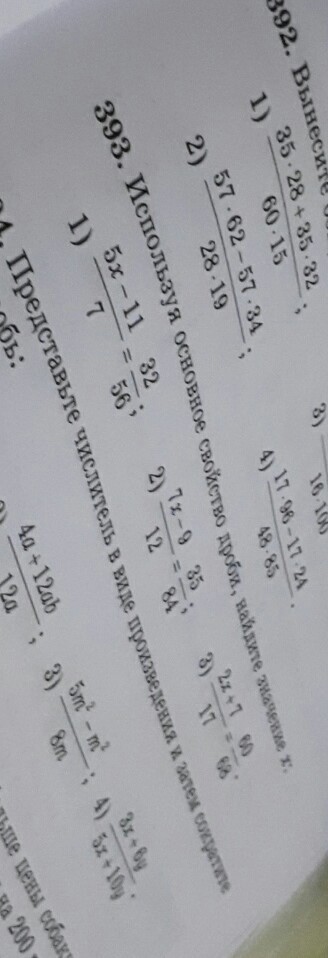 392. Вынесите
1) (35 · 28 + 35 · 32)/(60 · 15);
2) (57 · 62 − 57 · 34)/(28 · 19);
3) /(16 · 100
4) (17 · 96 − 17 · 24)/(48 · 85).
393. Используя основное свойство дроби, найдите значение x:
1) (5x − 11)/7 = 32/56;
2) (7x − 9)/12 = 35/84;
3) (2x + 7)/17 = 60/68.
4. Представьте числитель в виде произведения и затем сократите
обь:
(4a + 12ab)/12a;
3) (5m² − m²)/8m;
4) (3x + 6y)/(5x + 10y).
цены
на 200